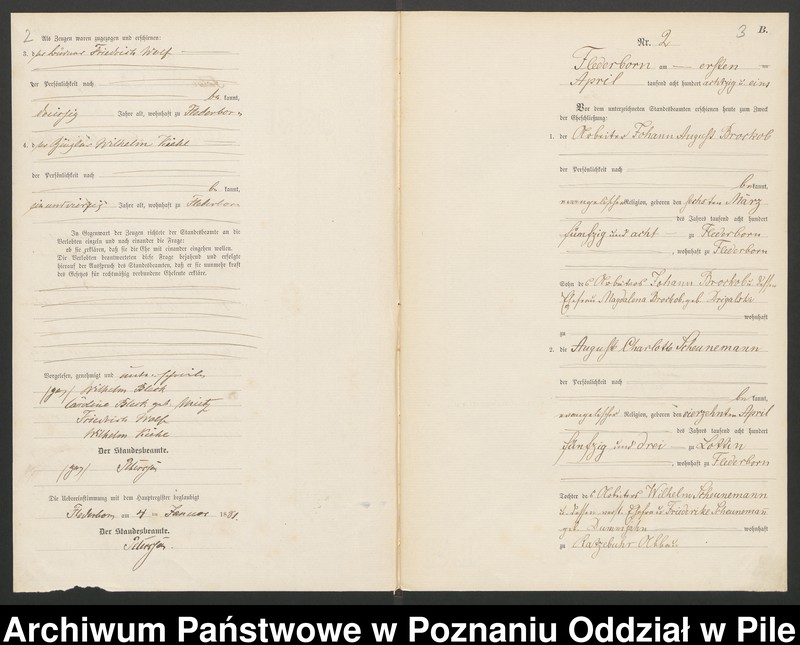 2
Als Zeugen waren zugezogen und erschienen:
3. der Friedrich Wolf
der Persönlichkeit nach
be kannt,
dreißig Jahre alt, wohnhaft zu Flederborn
4. der Wilhelm Kiehl
der Persönlichkeit nach
be kannt,
Jahre alt, wohnhaft zu Flederborn
In Gegenwart der Zeugen richtete der Standesbeamte an die
Verlobten einzeln und nach einander die Frage:
ob sie erklären, daß sie die Ehe mit einander eingehen wollen.
Die Verlobten beantworteten diese Frage bejahend und erfolgte
hierauf der Ausspruch des Standesbeamten, daß er sie nunmehr kraft
des Gesetzes für rechtmäßig verbundene Eheleute erkläre.
Vorgelesen, genehmigt und unterschrieben
(gez) Wilhelm Bleck
Bleck geb.
Friedrich Wolf
Wilhelm Kiehl
Der Standesbeamte.
(gez) Petersen
Die Uebereinstimmung mit dem Hauptregister beglaubigt
Flederborn am 4 ten Januar 1881.
Der Standesbeamte.
Petersen.
3 B.
Nr. 2
Flederborn am ersten
April tausend acht hundert achtzig u. eins
Vor dem unterzeichneten Standesbeamten erschienen heute zum Zweck
der Eheschließung:
1. der Arbeiter Johann August Brockob
der Persönlichkeit nach
be kannt,
evangelischer Religion, geboren den sechsten März
des Jahres tausend acht hundert
fünfzig und acht zu Flederborn
, wohnhaft zu Flederborn
Sohn des Arbeiters Johann Brockob u. dessen
Ehefrau Magdalena Brockob geb.
wohnhaft
zu
2. die Auguste Charlotte Scheunemann
der Persönlichkeit nach
be kannt,
evangelischer Religion, geboren den vierzehnten April
des Jahres tausend acht hundert
fünfzig und drei zu Lottin
, wohnhaft zu Flederborn
Tochter des Arbeiters Wilhelm Scheunemann
u. dessen Ehefrau Friederike Scheunemann
geb. wohnhaft
zu Ratzebuhr Abbau
Archiwum Państwowe w Poznaniu Oddział w Pile